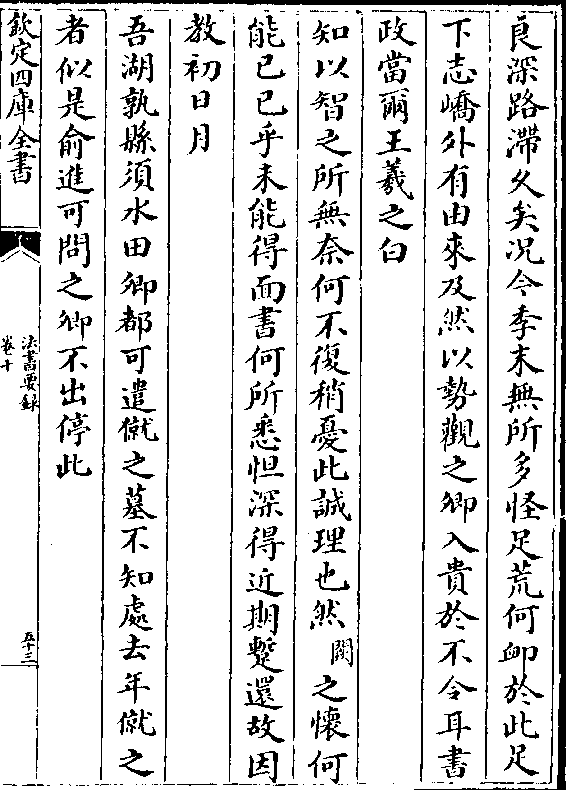 良深路滯久矣况今季末無所多怪足荒何䘏於此足
下志嶠外有由來及然以勢觀之卿入貴於不令耳書
政當爾王羲之白
知以智之所無奈何不復稍憂此誠理也然闕之懷何
能已已乎未能得面書何所悉怛深得近期蹔還故因
教初日月
吾湖孰縣須水田卿都可遣僦之墓不知處去年僦之
者似是俞進可問之卿不出停此
欽定四庫全書
法書要録
卷十
五十三